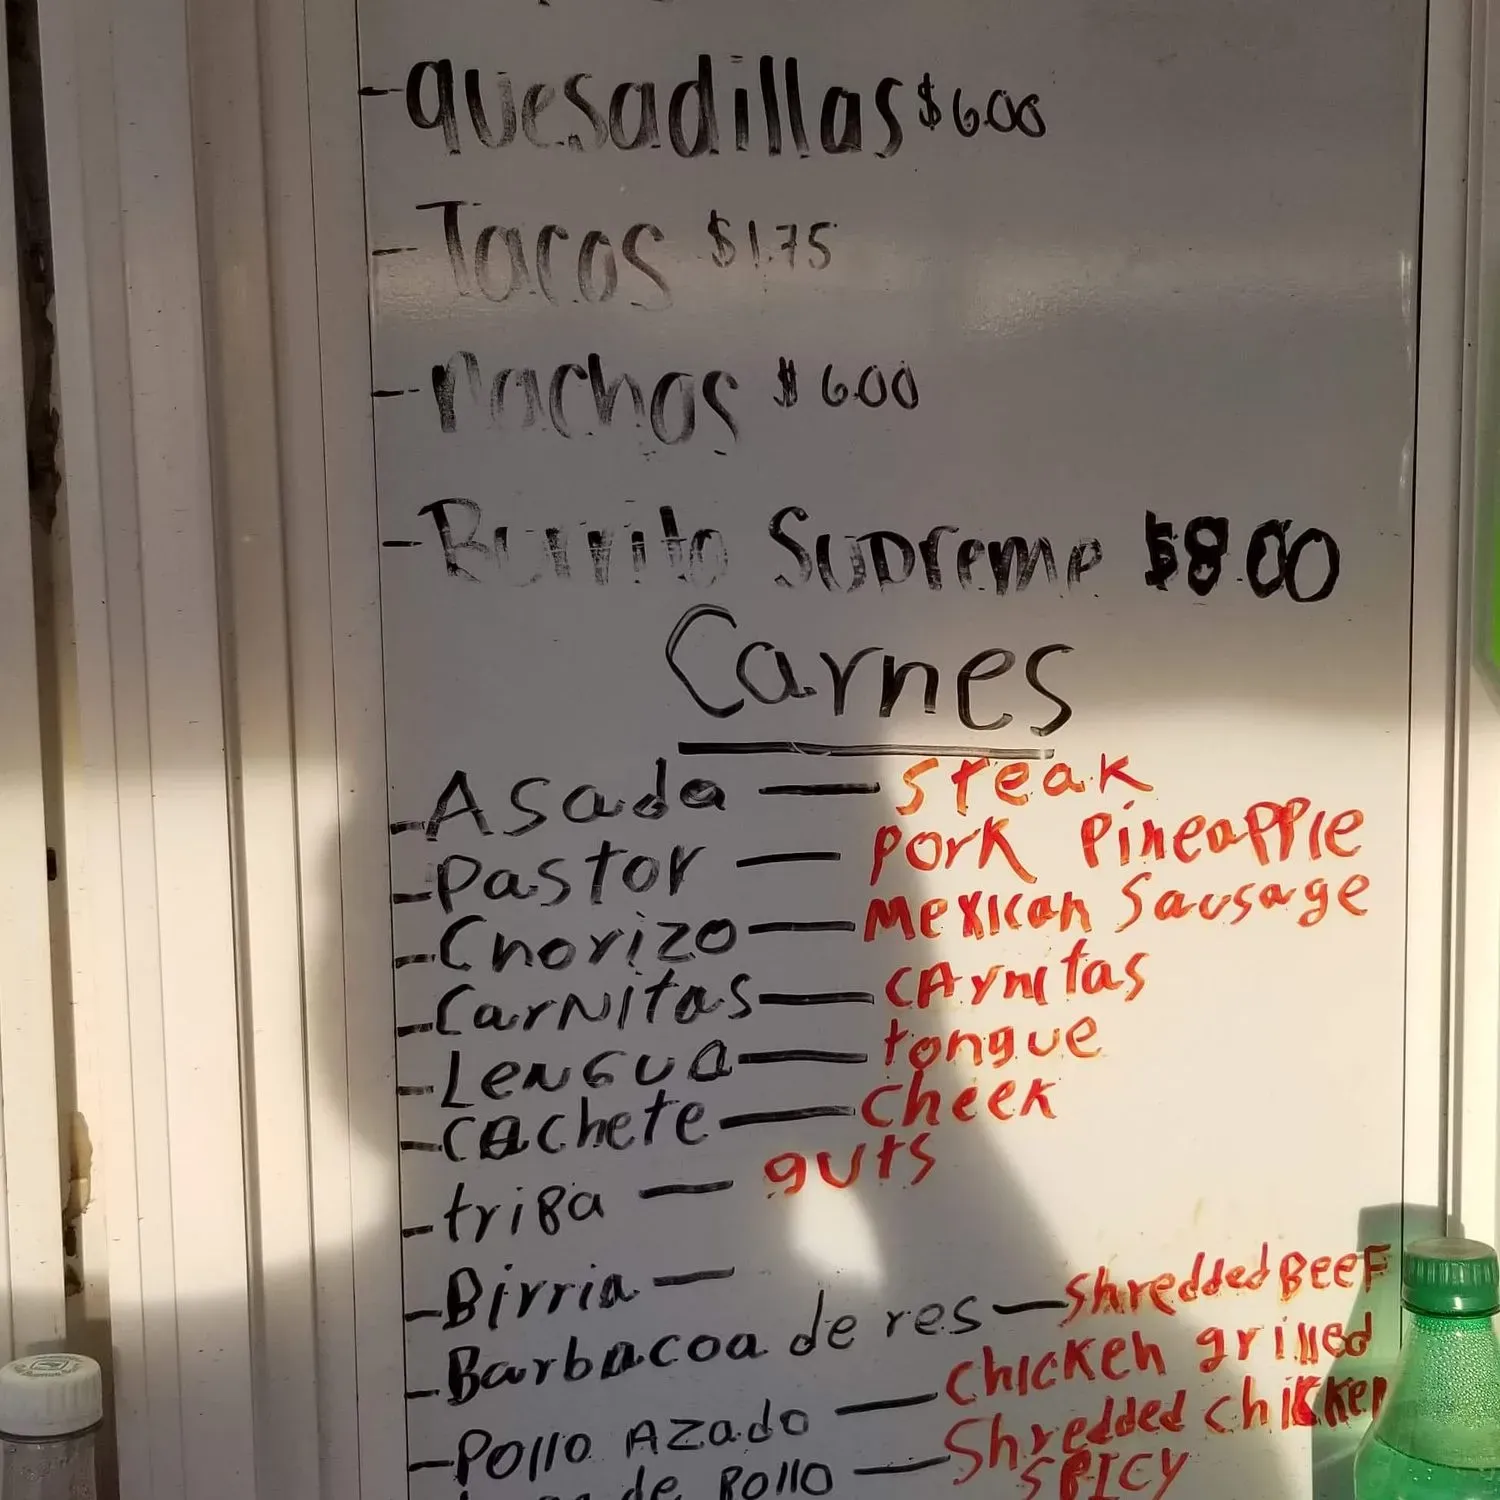 - quesadillas $6.00
- Tacos $1.75
- nachos $6.00
- Burrito Supreme $8.00
Carnes
- Asada — steak
- Pastor — pork pineapple
- Chorizo — Mexican Sausage
- Carnitas — CArnitas
- Lengua — tongue
- cachete — cheek
- tripa — guts
- Birria —
- Barbacoa de res — Shredded BeeF
- Pollo Azado — Chicken grilled
de Pollo — Shredded chicken
SPICY